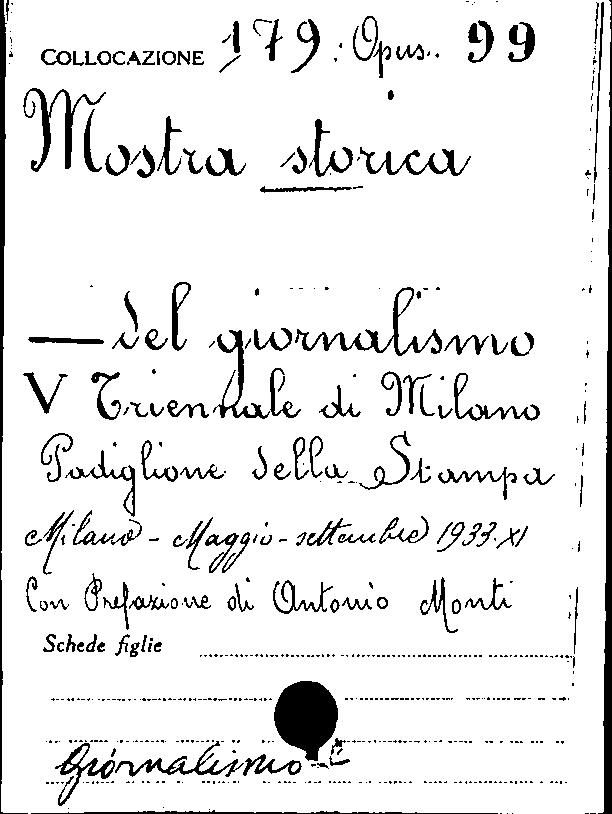 COLLOCAZIONE 179: Opus. 99
Mostra storica
— del giornalismo
V Triennale di Milano
Padiglione della Stampa
Milano - Maggio - settembre 1933.XI
Con Prefazione di Antonio Monti
Schede figlie
Giornalismo